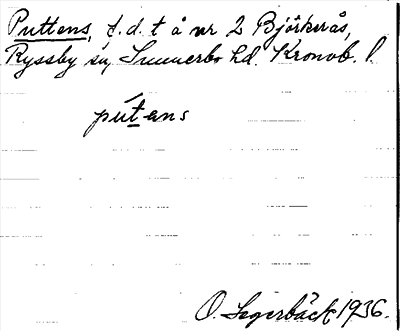 Puttens, f.d. t å nr 2 Björkerås,
Ryssby sn, Sunnerbo hd. Kronob. l.
pútens
O. Lagerbäck 1936.